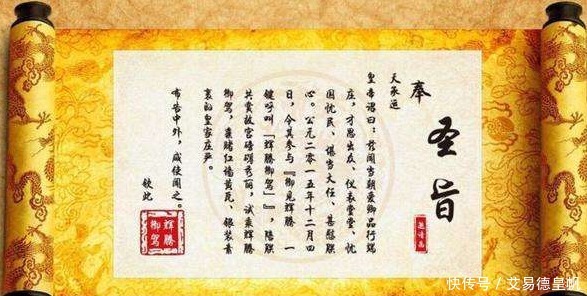 圣旨
邀请函
奉
天承运
皇帝诏曰：兹闻当朝爱卿品行端
庄，才思出众、仪表堂堂、忧
国忧民、堪当大任、甚慰朕
心。公元二零一五年十二月四
日，令其参与『御见辉腾，一
键呼叫「辉腾御驾」』，陪朕
共赏故宫磅礴秀丽，试乘辉腾
御驾，亲睹红墙黄瓦、银装素
裹的皇家庄严。
布告中外，咸使闻之。
钦此
辉腾
御驾
快传号 / 艾易德皇帆